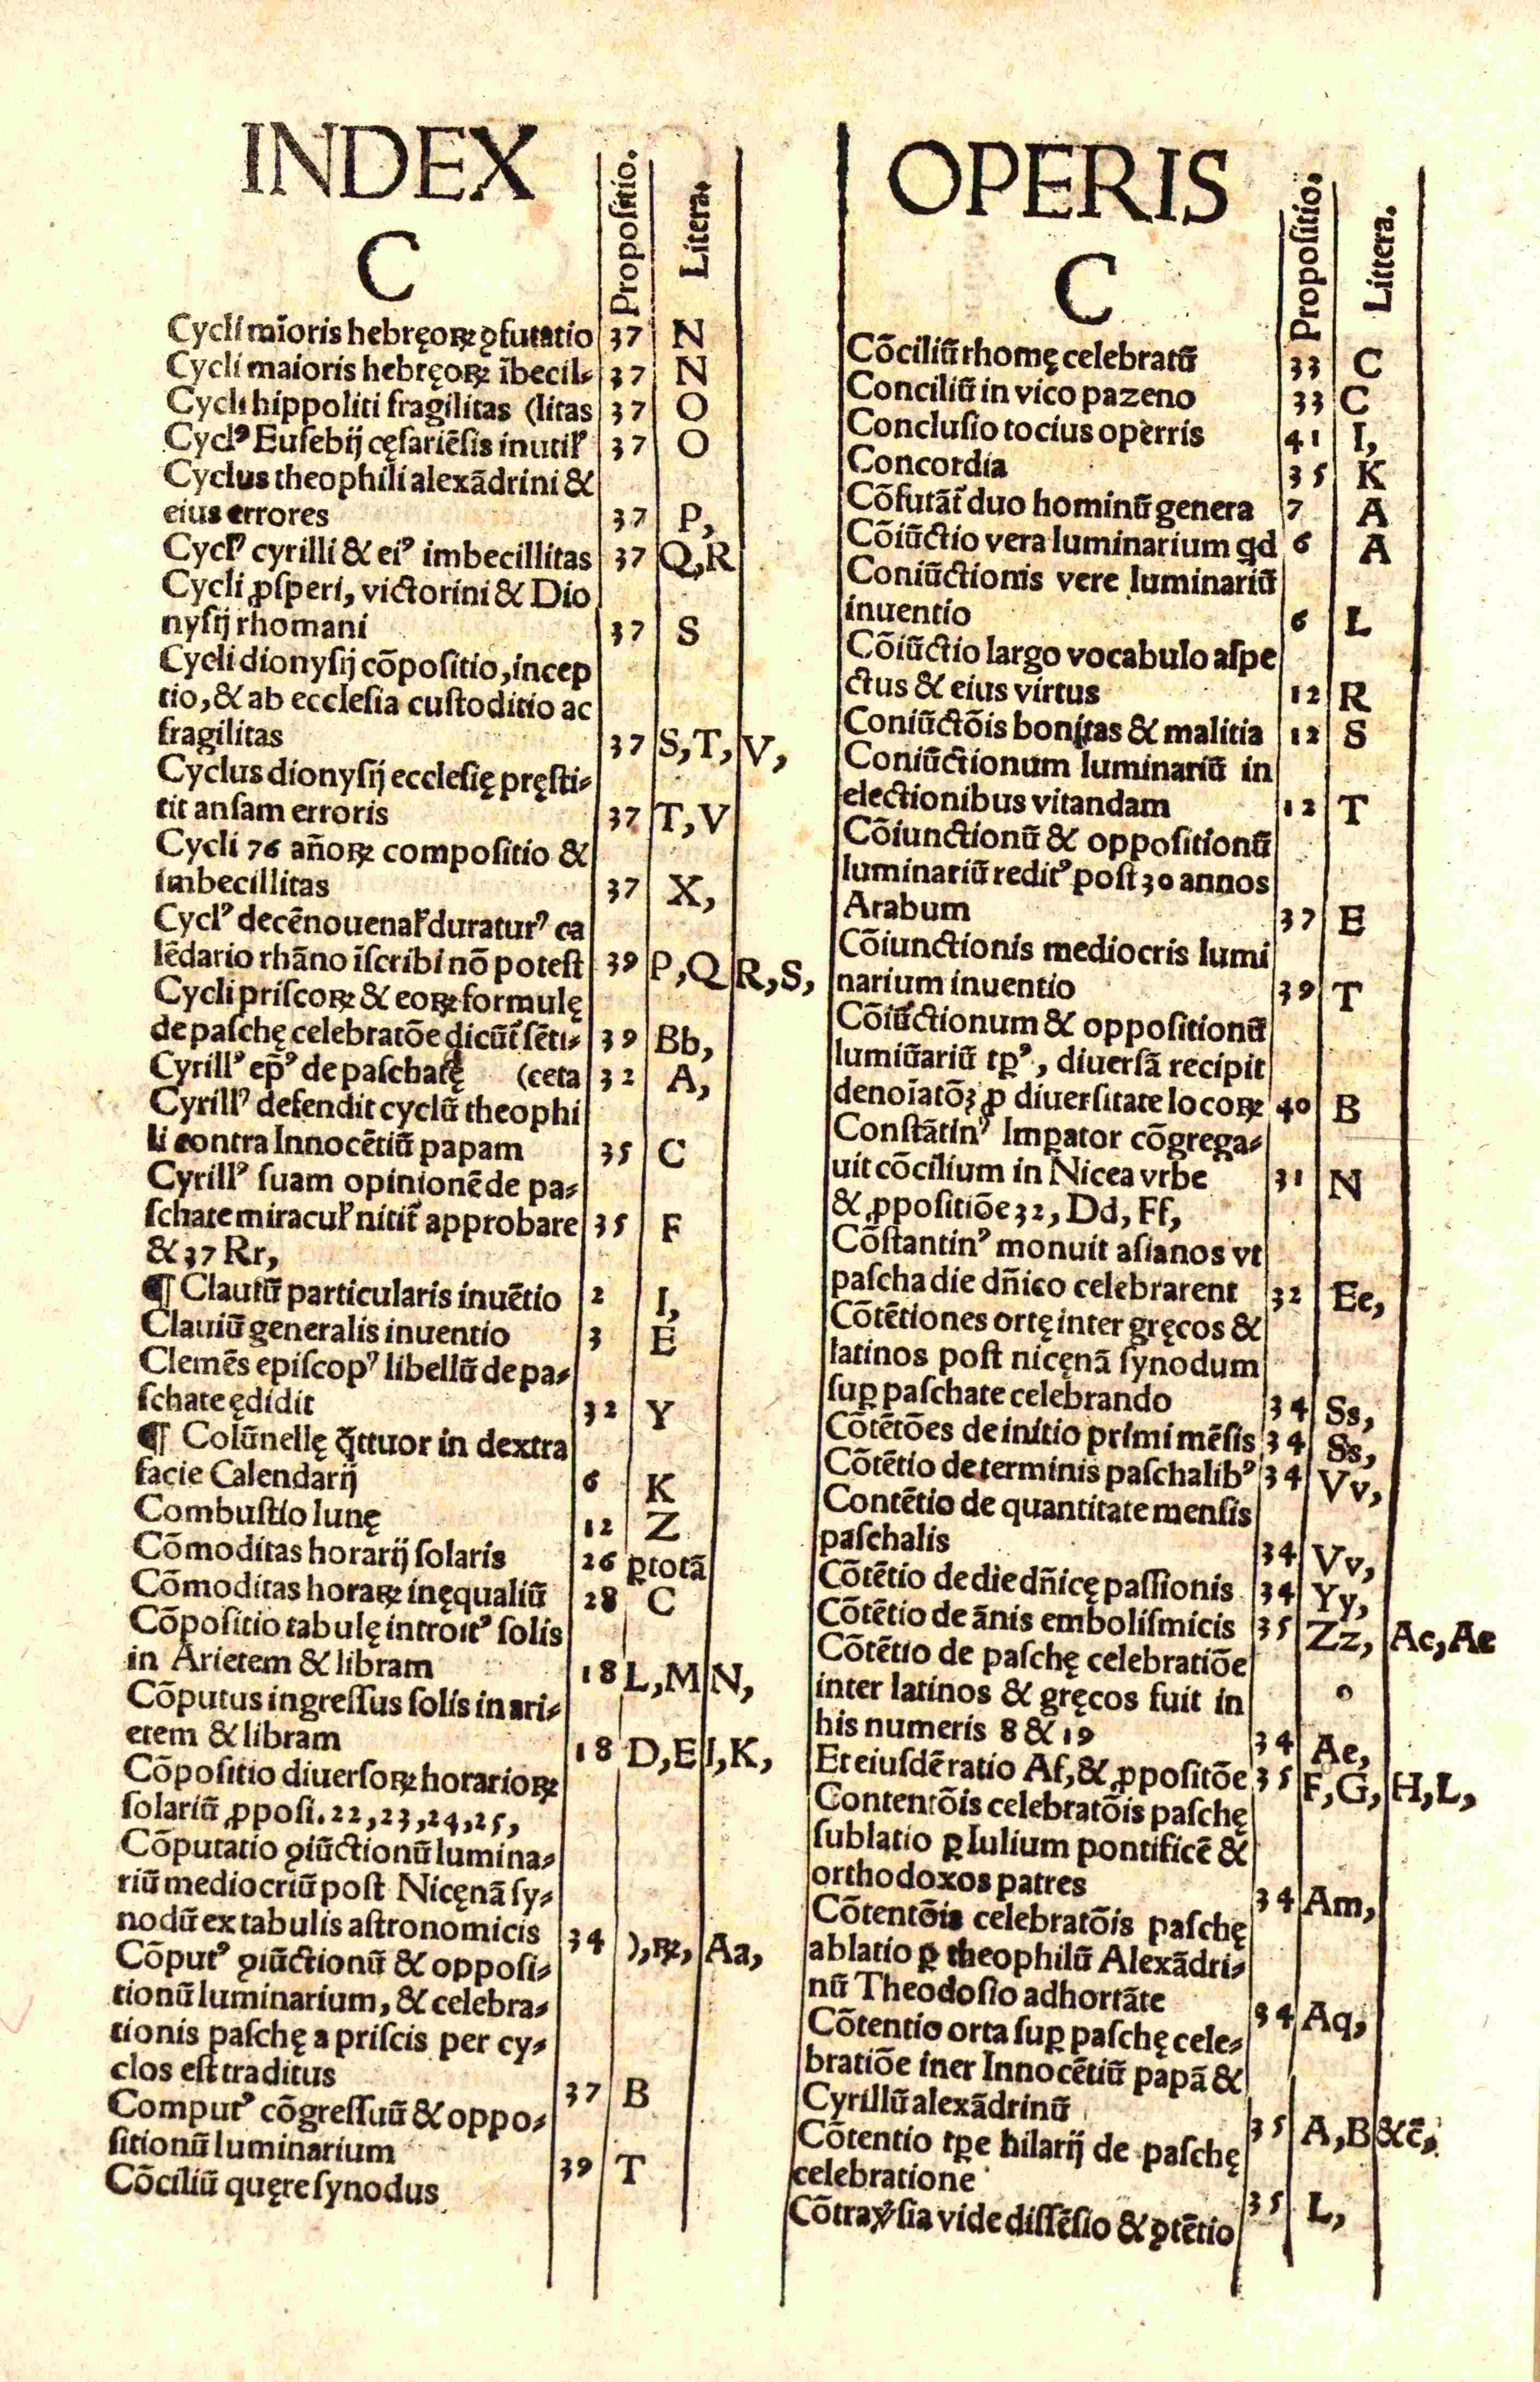 INDEX
C
Propositio.
Litera.
Cycli maioris hebręoꝝ ꝯfutatio 37 N
Cycli maioris hebręoꝝ ĩbecil- 37 N
Cycli hippoliti fragilitas (litas 37 O
Cyclꝰ Eusebij cęsariẽsis inutil' 37 O
Cyclus theophili alexãdrini &
eius errores 37 P,
Cycl' cyrilli & eiꝰ imbecillitas 37 Q,R
Cycli ꝓsperi, victorini & Dio
nysij rhomani 37 S
Cycli dionysij cõpositio, incep
tio, & ab ecclesia custoditio ac
fragilitas 37 S,T,V,
Cyclus dionysij ecclesię pręsti-
tit ansam erroris 37 T,V
Cycli 76 añoꝝ compositio &
imbecillitas 37 X,
Cyclꝰ decẽnouenal' duraturꝰ ca
lẽdario rhãno ĩscribi nõ potest 39 P,Q R,S,
Cycli priscoꝝ & eoꝝ formulę
de paschę celebratõe dicũt' sẽti- 39 Bb,
Cyrillꝰ ep̃ꝰ de paschatę (ceta 32 A,
Cyrillꝰ defendit cyclũ theophi
li contra Innocẽtiũ papam 35 C
Cyrillꝰ suam opinionẽ de pa-
schate miracul' nitit' approbare 35 F
& 37 Rr,
¶ Clauiũ particularis inuẽtio 2 I,
Clauiũ generalis inuentio 3 E
Clemẽs episcopꝰ libellũ de pa-
schate ędidit 32 Y
¶ Colũnellę q̃ttuor in dextra
facie Calendarij 6 K
Combustio lunę 12 Z
Cõmoditas horarij solaris 26 ꝑtotã
Cõmoditas horaꝝ inęqualiũ 28 C
Cõpositio tabulę introitꝰ solis
in Arietem & libram 18 L,M N,
Cõputus ingressus solis in ari-
etem & libram 18 D,E I,K,
Cõpositio diuersoꝝ horarioꝝ
solariũ ꝓposi. 22,23,24,25,
Cõputatio ꝯiũctionũ lumina-
riũ mediocriũ post Nicęnã sy-
nodũ ex tabulis astronomicis 34 ),ꝝ, Aa,
Cõputꝰ ꝯiũctionũ & opposi-
tionũ luminarium, & celebra-
tionis paschę a priscis per cy-
clos est traditus 37 B
Computꝰ cõgressuũ & oppo-
sitionũ luminarium 39 T
Cõciliũ quęre synodus
OPERIS
C
Propositio.
Littera.
Cõciliũ rhomę celebratũ 33 C
Conciliũ in vico pazeno 33 C
Conclusio tocius operris 41 I,
Concordia 35 K
Cõfutãt' duo hominũ genera 7 A
Cõiũctio vera luminarium qd 6 A
Coniũctionis vere luminariũ
inuentio 6 L
Cõiũctio largo vocabulo aspe
ctus & eius virtus 12 R
Coniũctõis bonitas & malitia 12 S
Coniũctionum luminariũ in
electionibus vitandam 12 T
Cõiunctionũ & oppositionũ
luminariũ reditꝰ post 30 annos
Arabum 37 E
Cõiunctionis mediocris lumi
narium inuentio 39 T
Cõiũctionum & oppositionũ
lumiũariũ tꝑꝰ, diuersã recipit
denoĩatõꝫ ꝓ diuersitate locoꝝ 40 B
Constãtinꝰ Imꝑator cõgrega-
uit cõcilium in Nicea vrbe 31 N
& ꝓpositiõe 32, Dd, Ff,
Cõstantinꝰ monuit asianos vt
pascha die dñico celebrarent 32 Ee,
Cõtẽtiones ortę inter gręcos &
latinos post nicęnã synodum
suꝑ paschate celebrando 34 Ss,
Cõtẽtões de initio primi mẽsis 34 Ss,
Cõtẽtio de terminis paschalibꝰ 34 Vv,
Contẽtio de quantitate mensis
paschalis 34 Vv,
Cõtẽtio de die dñicę passionis 34 Yy,
Cõtẽtio de ãnis embolismicis 35 Zz, Ac,Ae
Cõtẽtio de paschę celebratiõe
inter latinos & gręcos fuit in
his numeris 8 & 19 34 Ae,
Et eiusdẽ ratio Af, & ꝓpositõe 35 F,G, H,L,
Contentõis celebratõis paschę
sublatio ꝑ Iulium pontificẽ &
orthodoxos patres 34 Am,
Cõtentõis celebratõis paschę
ablatio ꝑ theophilũ Alexãdri-
nũ Theodosio adhortãte 34 Aq,
Cõtentio orta suꝑ paschę cele-
bratiõe iner Innocẽtiũ papã &
Cyrillũ alexãdrinũ 35 A,B &c̃,
Cõtentio tꝑe hilarij de paschę
celebratione 35 L,
Cõtraꝟsia vide dissẽsio & ꝯtẽtio